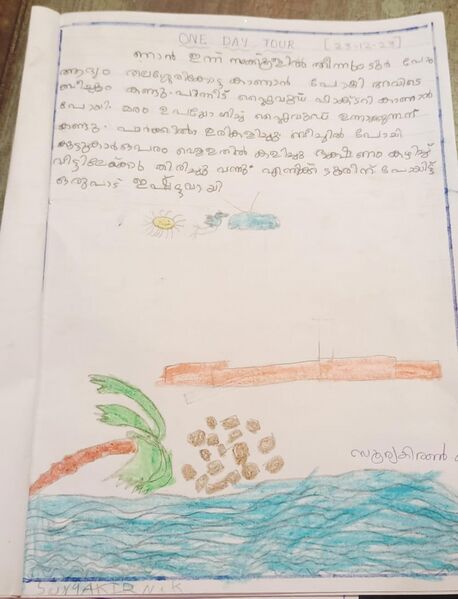 ONE DAY TOUR [23-12-23]
ഞാൻ ഇന്ന് സ്കൂളിൽ നിന്നും ടൂർ പോയി
ആദ്യം തലശ്ശേരികോട്ട കാണാൻ പോയി അവിടെ
ബീച്ചും കണ്ടു. പിന്നീട് പ്ലൈവുഡ് ഫാക്ടറി കാണാൻ
പോയി. മരം ഉപയോഗിച്ച് പ്ലൈവുഡ് ഉണ്ടാക്കുന്നത്
കണ്ടു. പാർക്കിൽ കളിച്ചു ബീച്ചിൽ പോയി
കൂട്ടുകാർക്കൊപ്പം വെള്ളത്തിൽ കളിച്ചു ഭക്ഷണം കഴിച്ച്
വീട്ടിലേക്ക് തിരിച്ചു വന്നു. എനിക്ക് ടൂറിന് പോയിട്ട്
ഒരുപാട് ഇഷ്ടമായി
സൂര്യകിരൺ
SURYAKIRAN.K